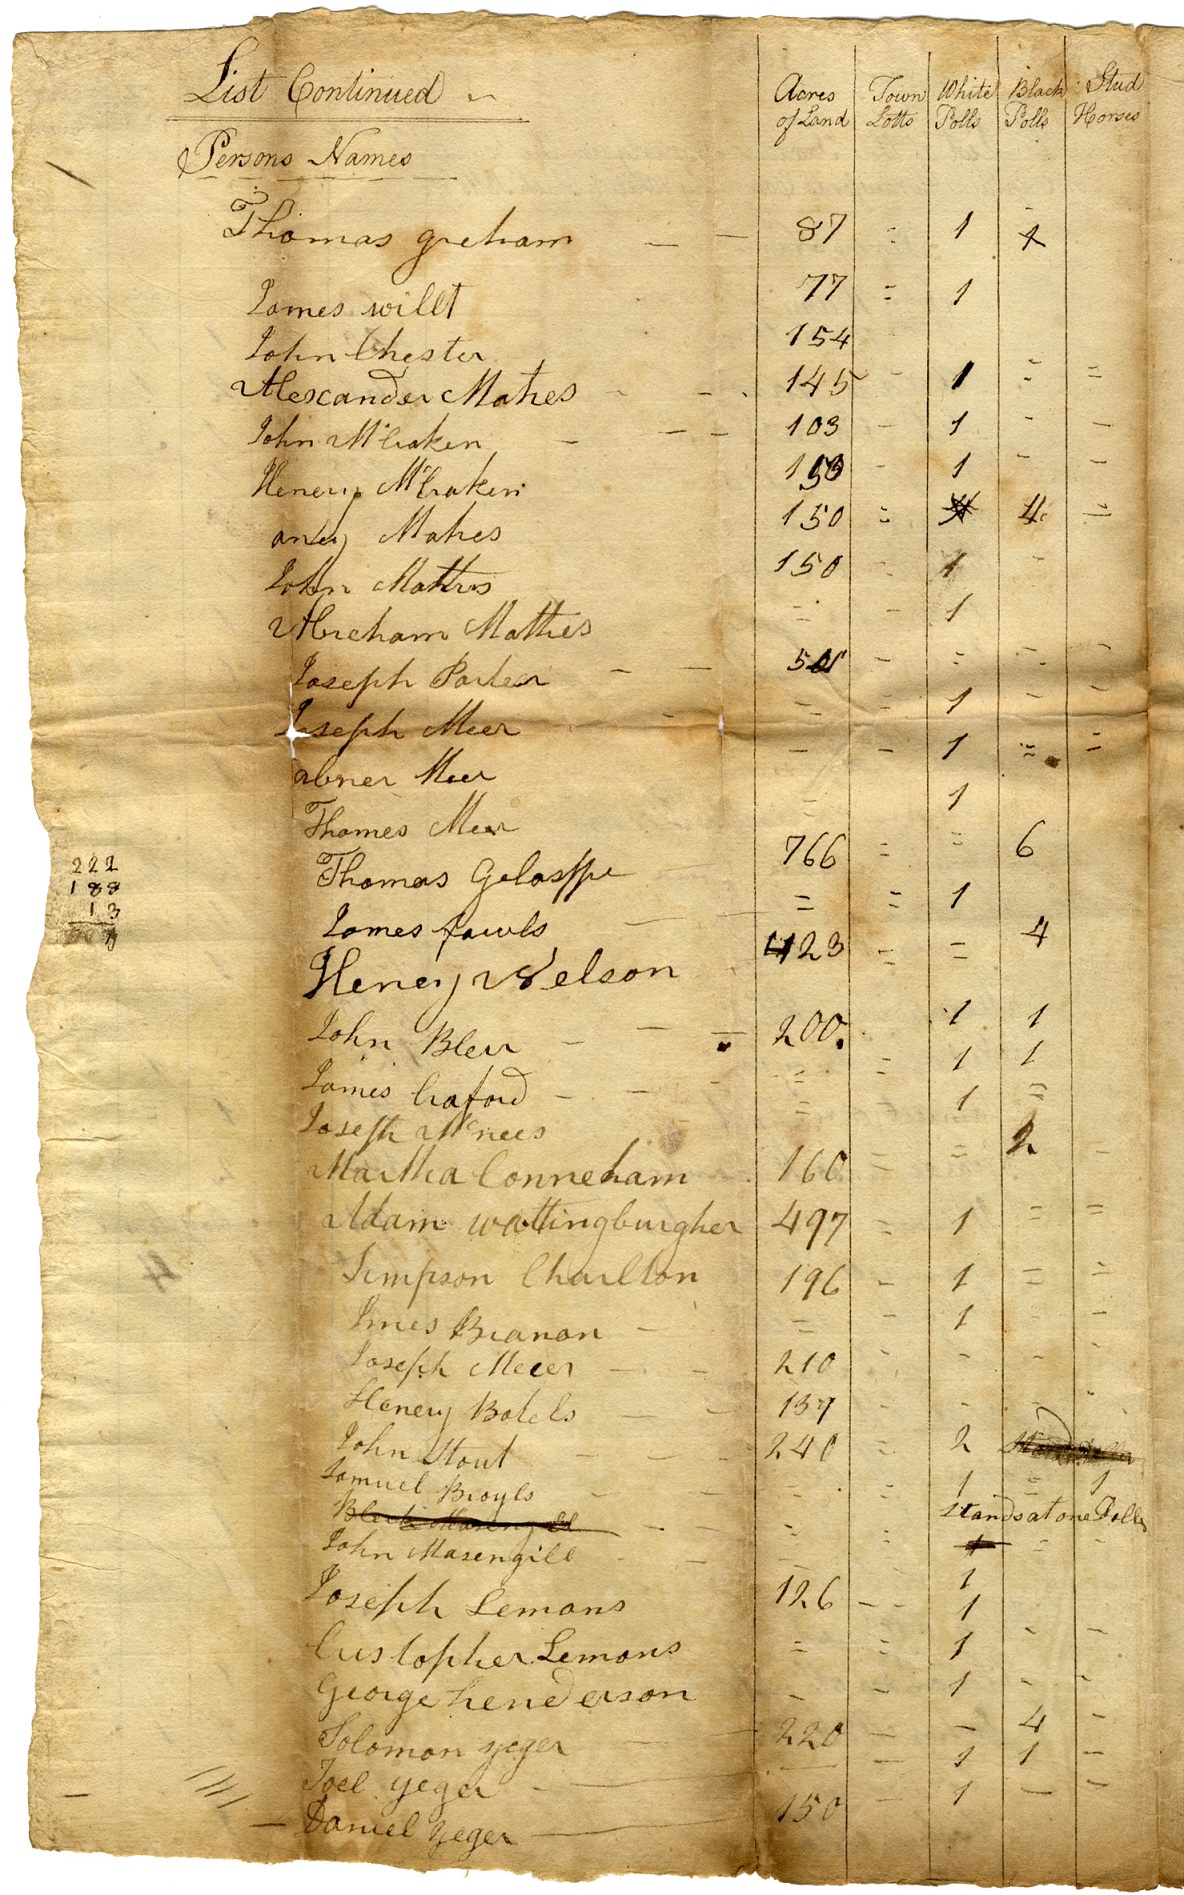 List Continued
Acres of Land | Town Lotts | White Polls | Black Polls | Stud Horses
Persons Names
Thomas greham — — 87 = 1
James willt 77 = 1
John Chester 154
Alexander Mathes - - - 145 - 1 = =
John McCraken - - - - 103 - 1 - -
Henery McCraken 150 - 1 - -
andy Mahes 150 = 4 =
John Mathes 150 - 1 -
Abreham Mathes = - 1
Joseph Parker - - 50 - = - -
Joseph Meer - = - 1 - -
abner Meer - - 1 = =
Thomas Meer - 1
Thomas Gelaspe 766 = = 6
James fowls — = = 1
Heney Nelson 423 = = 4
John Bleer - - = 200 1 1
James Craford - - - = = 1 1
Joseph McNees = 1 =
Martha Conneham 160 = = 2 -
Adam wattingburgher 497 = 1 = =
Simpson Charlton 196 - 1 = =
James Branon - = - 1 - -
Joseph Meeer - - 210 - - - -
Henery Botels - - 137 - - - -
John Stout - - - 240 = 2
Samuel Broyls - - = = 1 = 1
222
188
13
Black Masengill - = = stands at one Doller
John Masengill - - = 1 = -
Joseph Lemons 126 - - 1
Cristopher Lemons = = 1 - -
George henderson - - 1 - -
Solomon yeger - - 220 - - 4 -
Joel yeger - — - 1 1 -
— Daniel yeger — 150 - 1 - -